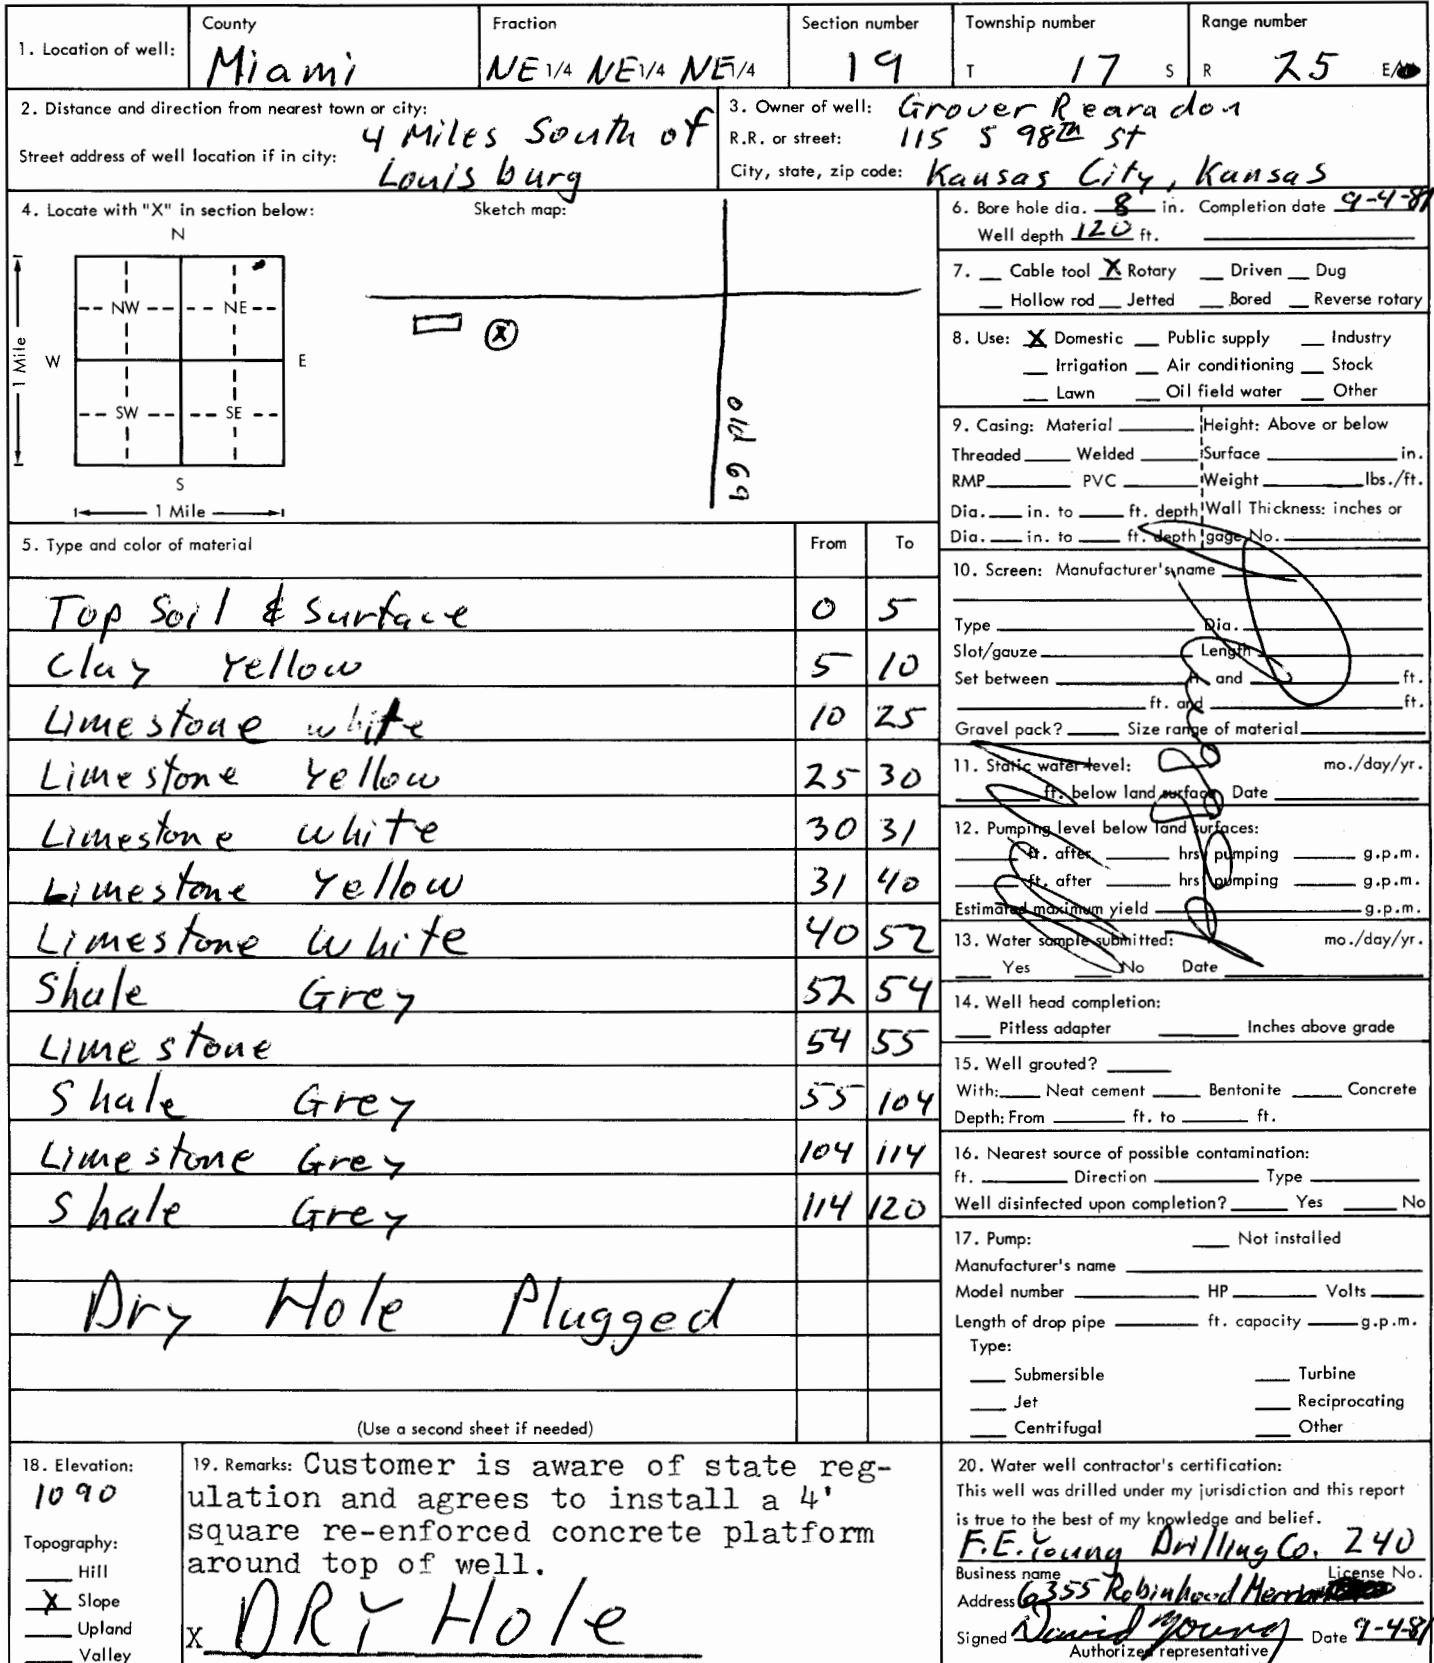 1. Location of well: County Miami Fraction NE 1/4 NE 1/4 NE 1/4 Section number 19 Township number T 17 S Range number R 25 E/
2. Distance and direction from nearest town or city: 4 Miles South of Louisburg
Street address of well location if in city:
3. Owner of well: Grover Rearadon
R.R. or street: 115 S 98th St
City, state, zip code: Kansas City, Kansas
4. Locate with "X" in section below: Sketch map:
N
NW NE
W E
SW SE
S
1 Mile
1 Mile
X
old 69
6. Bore hole dia. 8 in. Completion date 9-4-81
Well depth 120 ft.
7. Cable tool X Rotary Driven Dug
Hollow rod Jetted Bored Reverse rotary
8. Use: X Domestic Public supply Industry
Irrigation Air conditioning Stock
Lawn Oil field water Other
9. Casing: Material Height: Above or below
Threaded Welded Surface in.
RMP PVC Weight lbs./ft.
Dia. in. to ft. depth Wall Thickness: inches or
Dia. in. to ft. depth gage No.
10. Screen: Manufacturer's name
Type Dia.
Slot/gauze Length
Set between ft. and ft.
ft. and ft.
Gravel pack? Size range of material
11. Static water level: mo./day/yr.
ft. below land surface Date
12. Pumping level below land surfaces:
ft. after hrs. pumping g.p.m.
ft. after hrs. pumping g.p.m.
Estimated maximum yield g.p.m.
13. Water sample submitted: mo./day/yr.
Yes No Date
14. Well head completion:
Pitless adapter Inches above grade
15. Well grouted?
With: Neat cement Bentonite Concrete
Depth: From ft. to ft.
16. Nearest source of possible contamination:
ft. Direction Type
Well disinfected upon completion? Yes No
17. Pump: Not installed
Manufacturer's name
Model number HP Volts
Length of drop pipe ft. capacity g.p.m.
Type:
Submersible Turbine
Jet Reciprocating
Centrifugal Other
5. Type and color of material From To
Top Soil & Surface 0 5
Clay Yellow 5 10
Limestone white 10 25
Limestone Yellow 25 30
Limestone white 30 31
Limestone Yellow 31 40
Limestone White 40 52
Shale Grey 52 54
Limestone 54 55
Shale Grey 55 104
Limestone Grey 104 114
Shale Grey 114 120
Dry Hole Plugged
(Use a second sheet if needed)
18. Elevation:
1090
Topography:
Hill
X Slope
Upland
Valley
19. Remarks: Customer is aware of state reg-
ulation and agrees to install a 4'
square re-enforced concrete platform
around top of well.
X DRY Hole
20. Water well contractor's certification:
This well was drilled under my jurisdiction and this report
is true to the best of my knowledge and belief.
F.E. Young Drilling Co. 240
Business name License No.
Address 6355 Robinhood
Signed David Young Date 9-4-81
Authorized representative